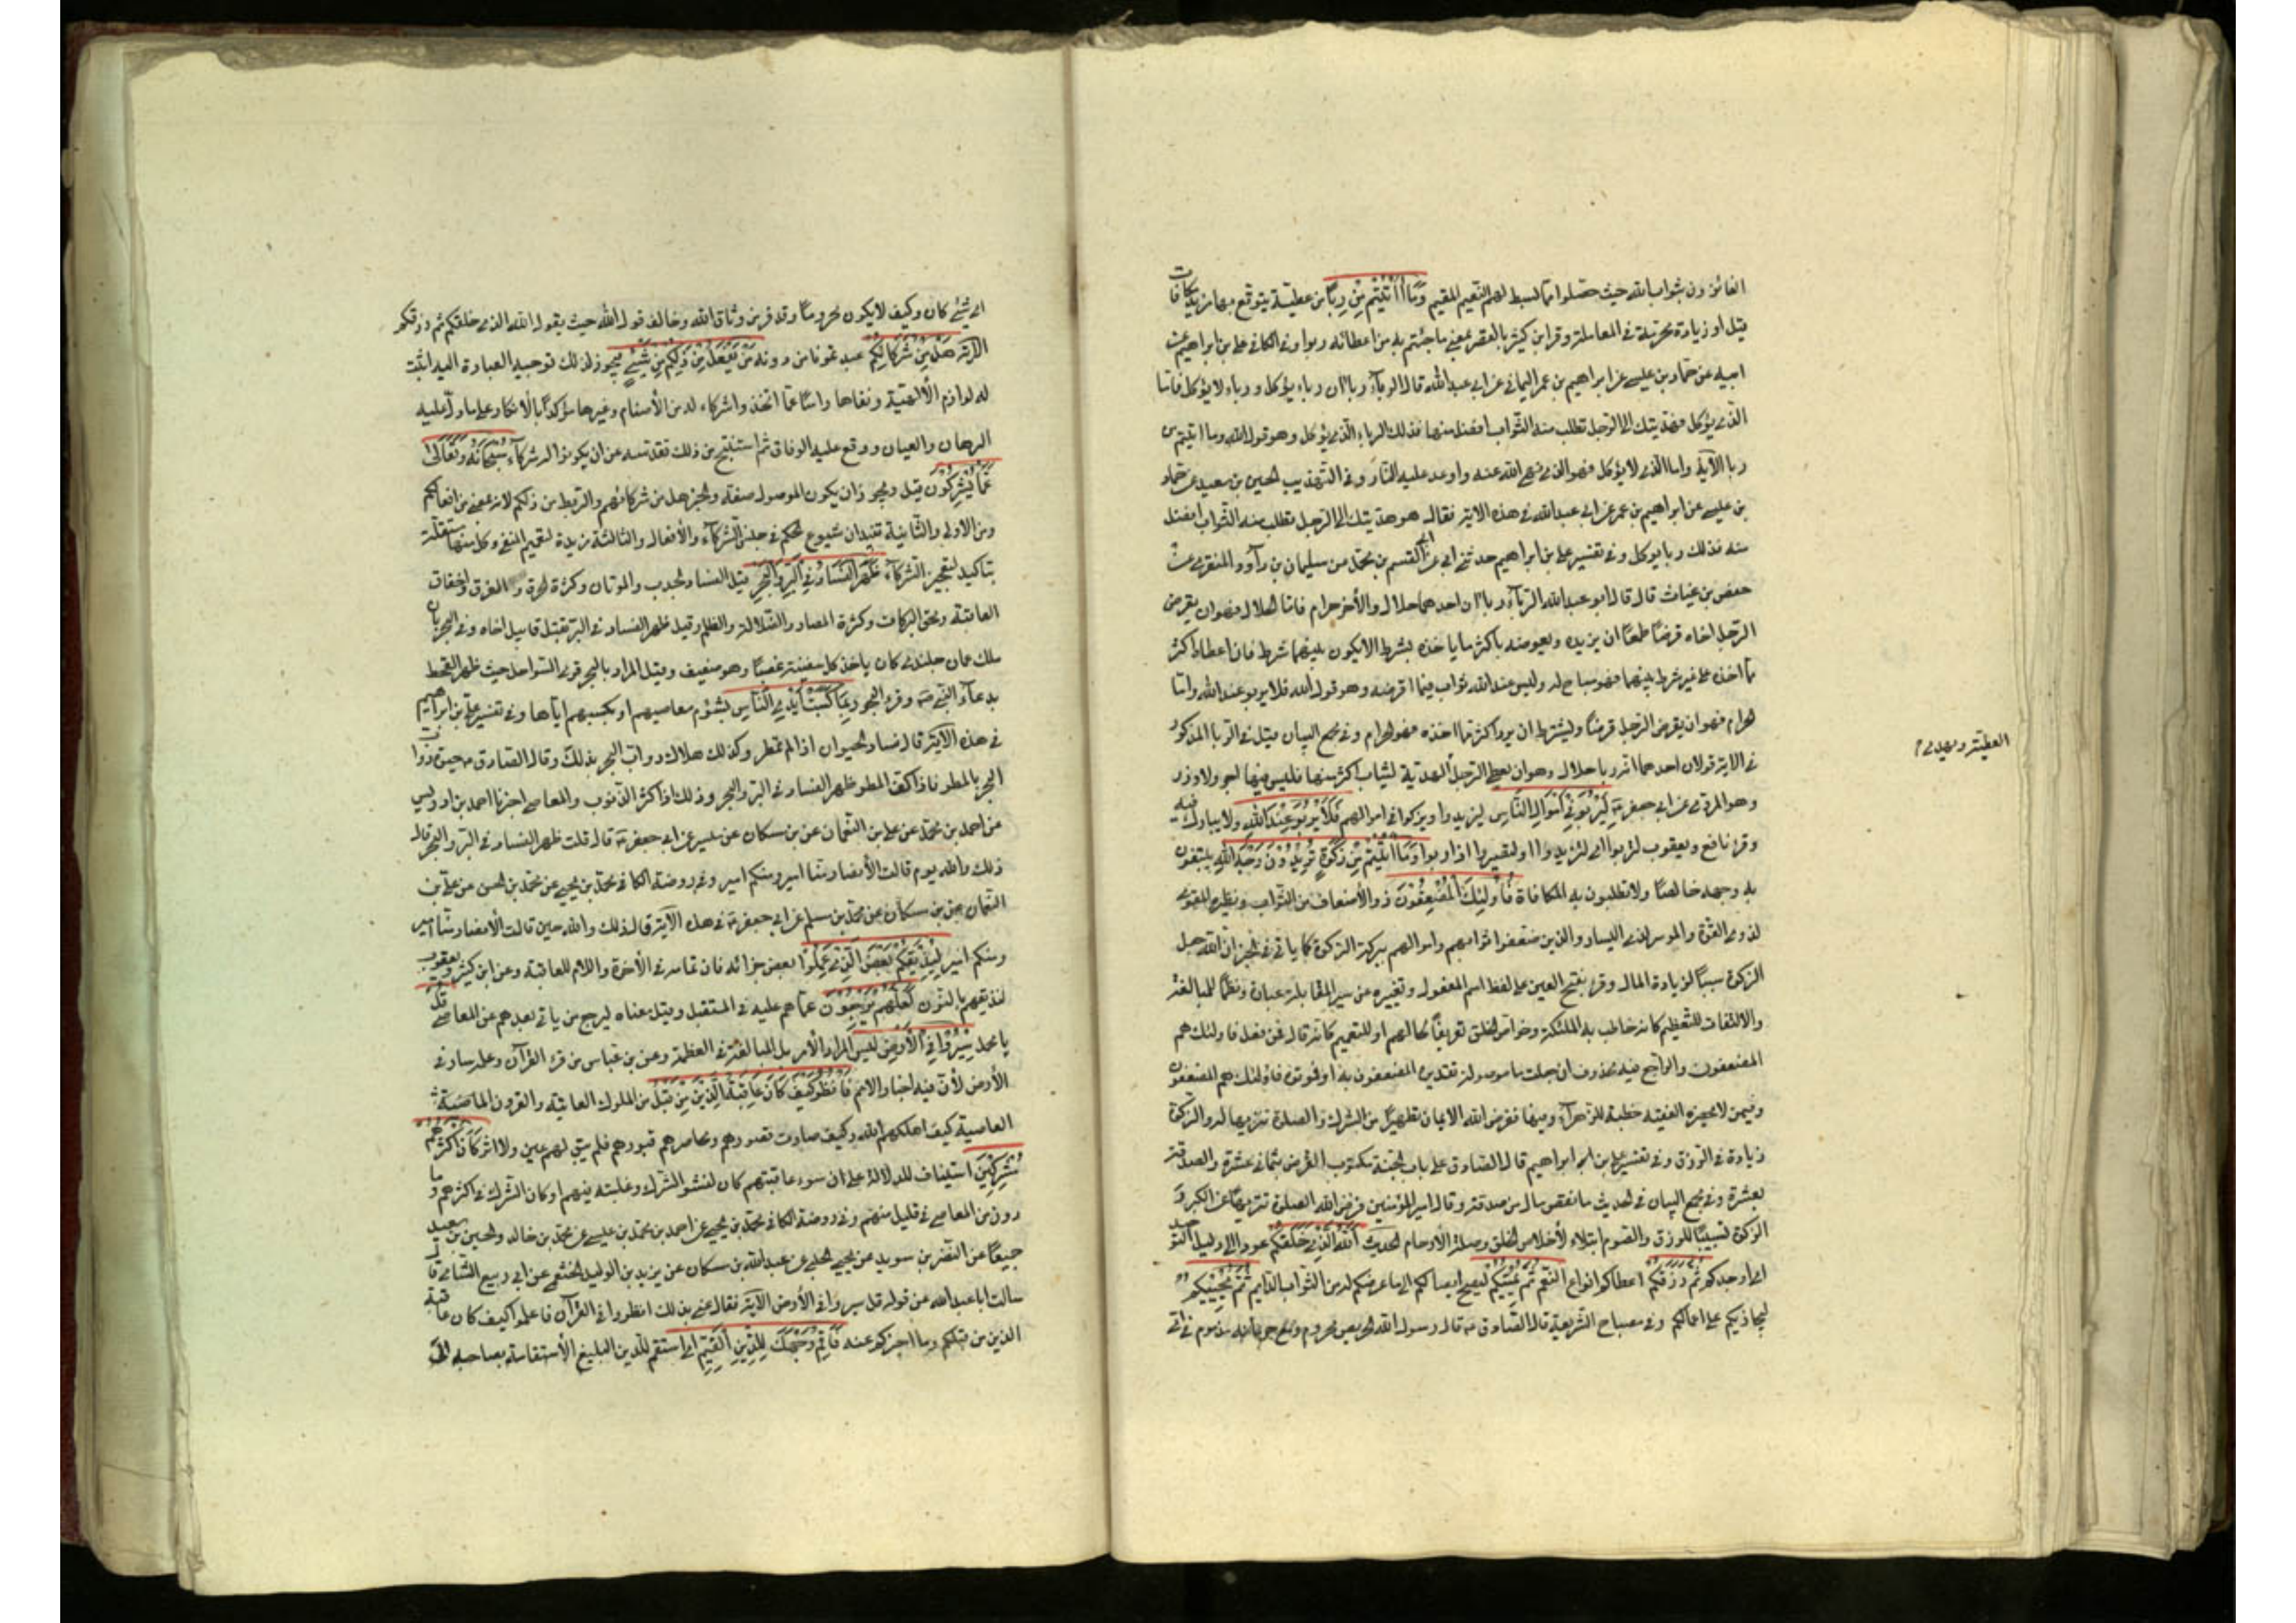 الفائزون بثواب الله حيث حصلوا مما بسط لهم النعيم المقيم وَمَا آتَيْتُمْ مِنْ رِبًا من عطية يتوقع بها مزيد مكافات
قيل او زيادة محرمة في المعاملة وقرا ابن كثير بالقصر بمعنى ما جئتم به من اعطائه ربوا وفي الكافي علي بن ابراهيم عن
ابيه عن حماد بن عيسى عن ابراهيم بن عمر اليماني عن ابي عبدالله قال الرباء رباءان رباء يؤكل ورباء لا يؤكل فاما
الذي يؤكل فهديتك الى الرجل تطلب منه الثواب افضل منها فذلك الرباء الذي يؤكل وهو قول الله وما اتيتم من
ربا الآية واما الذي لا يؤكل فهو الذي نهى الله عنه واوعد عليه النار وفي التهذيب الحسين بن سعيد عن حماد
بن عيسى عن ابراهيم بن عمر عن ابي عبدالله في هذه الاية فقال هو هديتك الى الرجل تطلب منه الثواب افضل
منه فذلك ربا يوكل وفي تفسير علي بن ابراهيم حدثني ابي عن القسم بن محمد عن سليمان بن داود المنقري عن
حفص بن غياث قال قال ابو عبدالله الرباء رباءان احدهما حلال والأخر حرام فاما الحلال فهو ان يقرض
الرجل اخاه قرضًا طمعًا ان يزيده ويعوضه باكثر ما ياخذه بشرط الا يكون بينهما شرط فان اعطاه اكثر
مما اخذه على غير شرط بينهما فهو مباح له وليس عند الله ثواب فيما اقرضه وهو قول الله فلا يربو عند الله واما
الحرام فهو ان يقرض الرجل قرضًا ويشترط ان يرد اكثر مما اخذه فهو الحرام وفي مجمع البيان قيل في الربا المذكور
في الاية قولان احدهما انه ربا حلال وهو ان يعطي الرجل الهدية ليثاب اكثر منها فليس فيها اجر ولا وزر
وهو المروي عن ابي جعفر لِيَرْبُوَ فِي أَمْوَالِ النَّاسِ ليزيد او يزكوا في اموالهم فَلَا يَرْبُو عِنْدَ اللَّهِ ولا يبارك فيه
وقرء نافع ويعقوب لتربوا اي لتزيدوا او لتصيروا اذا ربوا وَمَا آتَيْتُمْ مِنْ زَكَوةٍ تُرِيدُونَ وَجْهَ اللَّهِ يبتغون
به وجهه خالصًا ولا تطلبون به المكافاة فَأُولَئِكَ هُمُ الْمُضْعِفُونَ ذو الأضعاف من الثواب ونظيره المقوي
لذوي القوة والموسر لذي اليسار والذين ضعفوا ثوابهم واموالهم ببركة الزكوة كما ياتي في الخبر ان الله جعل
الزكوة سببًا لزيادة المال وقرء بفتح العين على لفظ اسم المفعول وتغييره عن سنن المقابلة عبارة ونظمًا للمبالغة
والالتفات للتعظيم كانه خاطب به الملئكة وخواص الخلق تعريفًا لحالهم او للتعميم كانه قال فمن فعل فاولئك هم
المضعفون والراجع فيه محذوف ان جعلت ما موصولة تقديره المضعفون به او فوتوه فاولئك هم المضعفون
وفيمن لا يحضره الفقيه خطبة للزهراء وفيها ففرض الله الايمان تطهيرًا من الشرك والصلوة تنزيها له والزكوة
زيادة في الرزق وفي تفسير علي بن ابراهيم قال الصادق على باب الجنة مكتوب القرض بثماني عشرة والصدقة
بعشرة وفي مجمع البيان في الحديث ما نقص مال من صدقة وقال امير المؤمنين فرض الله الصلوة تنزيهًا عن الكبر و
الزكوة تسبيبًا للرزق والصيام ابتلاء لأخلاص الخلق وصلة الأرحام الحديث اَللَّهُ الَّذِي خَلَقَكُمْ عود الى دليل التوحيد
اي اوجدكم ثُمَّ رَزَقَكُمْ اعطاكم انواع النعم ثُمَّ يُمِيتُكُمْ ليصح ايصالكم الى ما عرضكم له من الثواب الدايم ثُمَّ يُحْيِيكُمْ
ليجازيكم على اعمالكم وفي مصباح الشريعة قال الصادق قال رسول الله الحريص محروم ومع حرمانه مذموم في اي
العطية ويهدى
اي شيء كان وكيف لا يكون محرومًا وقد فر من وثاق الله وخالف قول الله حيث يقول الله الذي خلقكم ثم رزقكم
الآية هَلْ مِنْ شُرَكَائِكُمْ عبدتموها من دونه مَنْ يَفْعَلُ مِنْ ذَلِكُمْ مِنْ شَيْءٍ فيجوز لذلك توجيه العبادة اليه اثبت
له لوازم الألوهية ونفاها راسًا عما اتخذوا شركاء له من الأصنام وغيرها مؤكدًا بالانكار على ما دل عليه
البرهان والعيان ووقع عليه الوفاق ثم استنتج من ذلك تقدسه عن ان يكون له شركاء سُبْحَانَهُ وَتَعَالَى
عَمَّا يُشْرِكُونَ قيل ويجوز ان يكون الموصول صفة والخبر هل من شركائهم والربط من ذلكم لانه بمعنى من افعالكم
ومن الاولى والثانية تفيدان شيوع الحكم في جنس الشركاء والأفعال والثالثة مزيدة لتعميم النفي وكل منها مستقلة
بتاكيد لتعجيز الشركاء ظَهَرَ الْفَسَادُ فِي الْبَرِّ وَالْبَحْرِ قيل الفساد الجدب والموتان وكثرة الحرق والغرق واخفاق
الغاصة ومحق البركات وكثرة المضار والضلالة والظلم وقيل ظهر الفساد في البر بقتل قابيل اخاه وفي البحر بان
ملك عمان جلندى كان ياخذ كل سفينة غصبًا وهو ضعيف وقيل المراد بالبحر قرى السواحل حيث ظهر القحط
بدعاء النبي وقرء البحور بِمَا كَسَبَتْ أَيْدِي النَّاسِ بشؤم معاصيهم او بكسبهم اياها وفي تفسير علي بن ابراهيم
في هذه الآية قال فساد الحيوان اذا لم تمطر وكذلك هلاك دواب البحر بذلك وقال الصادق حيوة دواب
البحر بالمطر فاذا كف المطر ظهر الفساد في البر والبحر وذلك اذا كثر الذنوب والمعاصي اخبرنا احمد بن ادريس
عن احمد بن محمد عن علي بن النعمان عن بن مسكان عن ميسر عن ابي جعفر قال قلت ظهر الفساد في البر والبحر قال
ذلك والله يوم قالت الأنصار منا امير ومنكم امير وفي روضة الكافي محمد بن يحيى عن محمد بن الحسن عن علي بن
النعمان عن بن مسكان عن محمد بن مسلم عن ابي جعفر في هذه الآية قال ذلك والله حين قالت الأنصار منا امير
ومنكم امير لِيُذِيقَهُمْ بَعْضَ الَّذِي عَمِلُوا بعض جزائه فان تمامه في الأخرة واللام للعاقبة وعن ابن كثير ويعقوب
لنذيقهم بالنون لَعَلَّهُمْ يَرْجِعُونَ عما هم عليه في المستقبل وقيل معناه ليرجع من ياتي بعدهم عن المعاصي قُلْ
يا محمد سِيرُوا فِي الْأَرْضِ ليس المراد الأمر بل المبالغة في العظة وعن بن عباس من قرء القرآن وعلمه سار في
الأرض لأن فيه اخبار الامم فَانْظُرُوا كَيْفَ كَانَ عَاقِبَةُ الَّذِينَ مِنْ قَبْلُ من الملوك العاتية والقرون الماضية
العاصية كيف اهلكهم الله وكيف صارت قصورهم ومحاصرهم قبورهم فلم يبق لهم عين ولا اثر كَانَ أَكْثَرُهُمْ
مُشْرِكِينَ استيناف للدلالة على ان سوء عاقبتهم كان لفشو الشرك وغلبته فيهم او كان الشرك في اكثرهم وما
دون من المعاصي في قليل منهم وفي روضة الكافي محمد بن يحيى عن احمد بن محمد بن عيسى عن محمد بن خالد والحسين بن سعيد
جميعًا عن النضر بن سويد عن يحيى الحلبي عن عبدالله بن مسكان عن يزيد بن الوليد الخثعمي عن ابي ربيع الشامي قال
سالت ابا عبدالله عن قوله قل سيروا في الأرض الآية فقال عنى بذلك انظروا في القرآن فاعلموا كيف كان عاقبة
الذين من قبلكم وما اخبركم عنه فَأَقِمْ وَجْهَكَ لِلدِّينِ الْقَيِّمِ اي استقم للدين البليغ الأستقامة بصاحبه الى